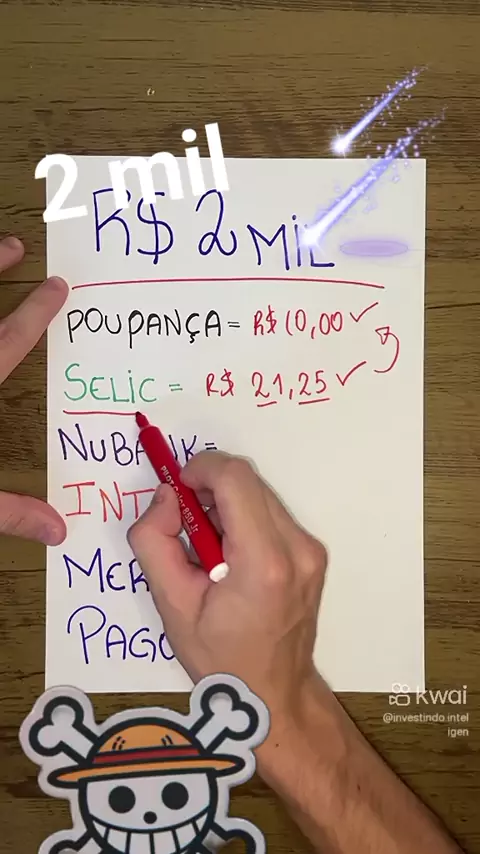 2 mil
R$ 2 MIL
POUPANÇA = R$ 10,00 ✓
SELIC = R$ 21,25 ✓
NUBANK =
INT
MER
PAGO
PILOT Color 850 Jr
kwai
@investindo.intel
igen